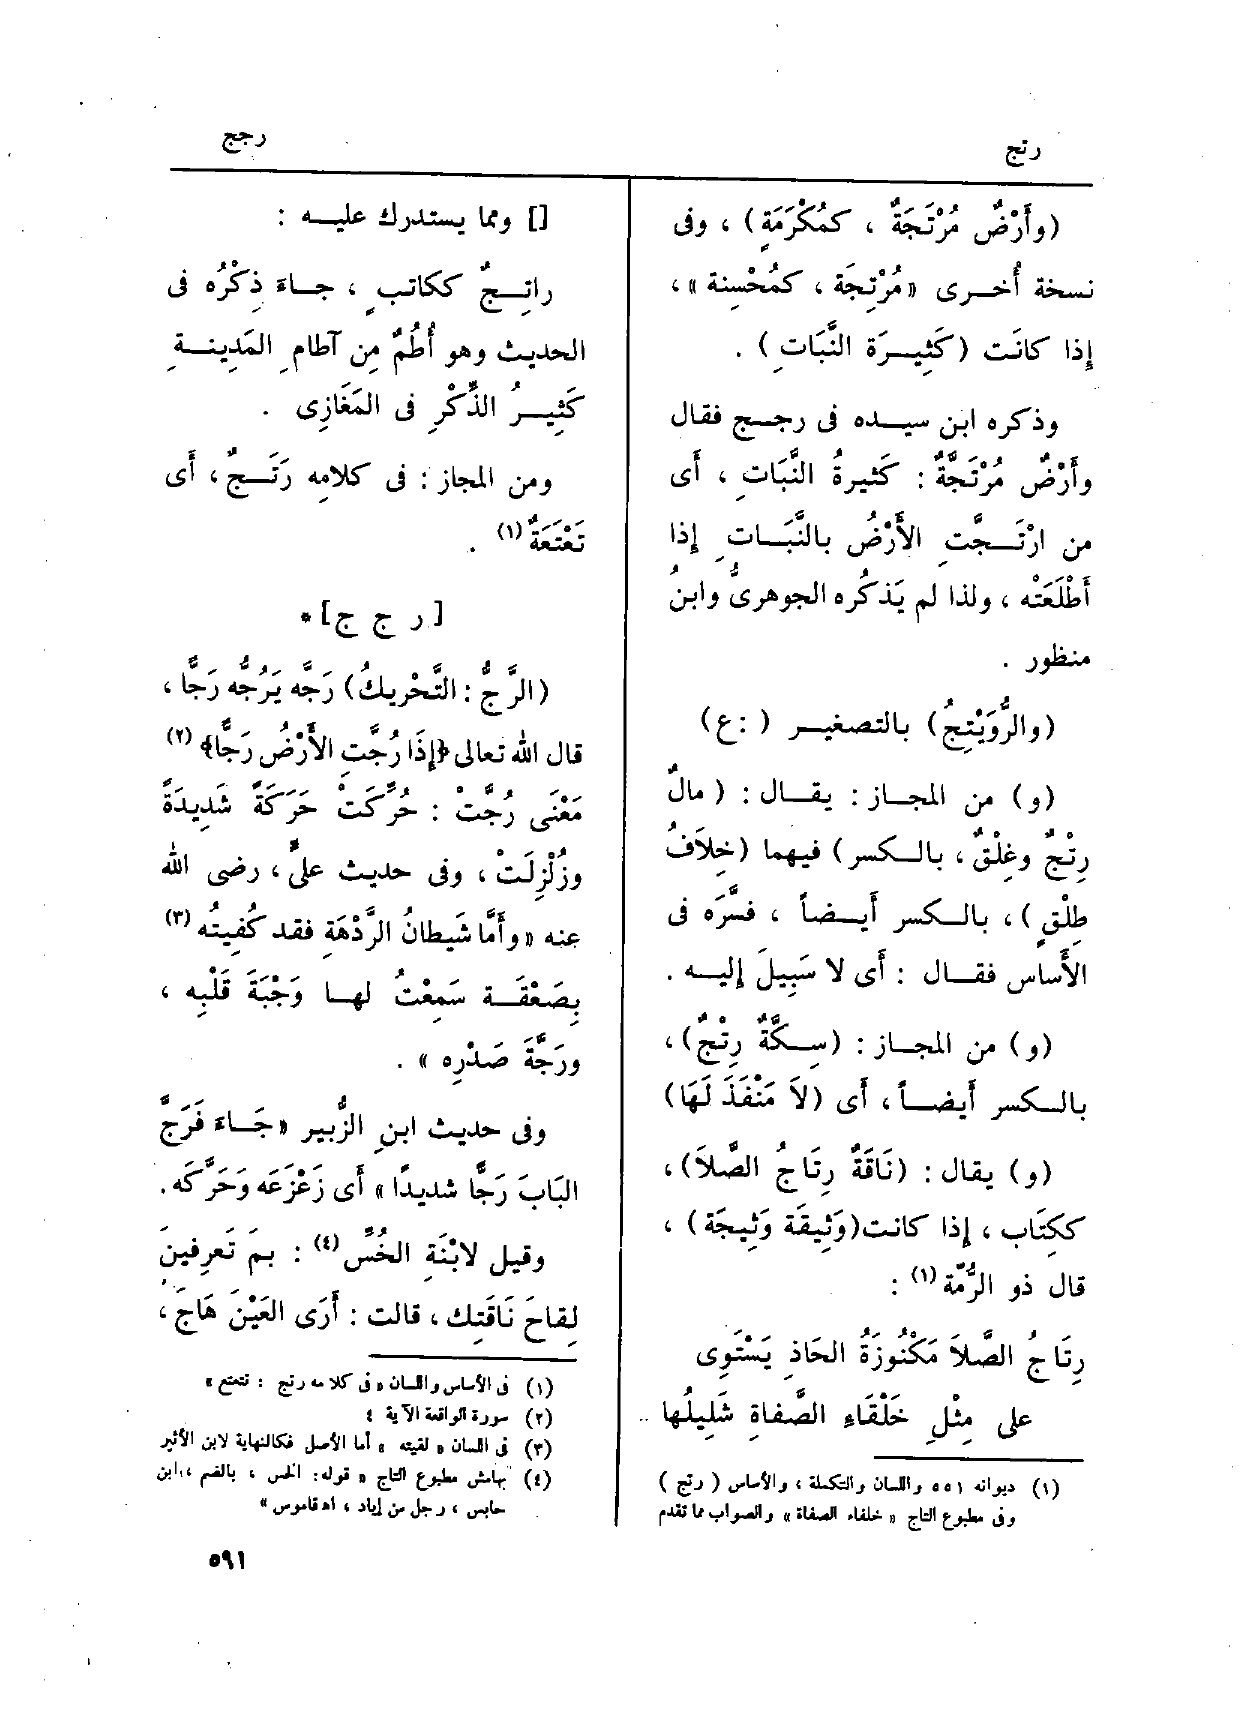 رتج
رجج
(وأَرْضٌ مُرْتَجَةٌ ، كمُكْرَمَةٍ) ، وفى
نسخة أُخرى «مُرْتِجَة ، كمُحْسِنة» ،
إِذا كانَت (كَثِيرَةَ النَّبَاتِ) .
وذكره ابن سيده فى رجج فقال
وأَرْضٌ مُرْتَجَّةٌ : كَثيرةُ النَّبَاتِ ، أَى
من ارْتَجَّتِ الأَرْضُ بالنَّبَاتِ إِذا
أَطْلَعَتْه ، ولذا لم يَذكُره الجوهرىُّ وابنُ
منظور .
(والرُّوَيْتِجُ) بالتصغير ( :ع)
(و) من المجاز : يقال : ( مالٌ
رِتْجٌ وغِلْقٌ ، بالكسر) فيهما (خِلاَفُ
طِلْقٍ) ، بالكسر أَيضاً ، فسَّرَه فى
الأَساس فقال : أَى لا سَبِيلَ إِليه .
(و) من المجاز : (سِكَّةٌ رِتْجٌ) ،
بالكسر أَيضاً ، أَى (لاَ مَنْفَذَ لَهَا)
(و) يقال : (نَاقَةٌ رِتَاجُ الصَّلاَ) ،
ككِتَاب ، إِذا كانت (وَثِيقَة وَثِيجَة) ،
قال ذو الرُّمّة (١) :
رِتَاجُ الصَّلاَ مَكْنُوزَةُ الحَاذِ يَسْتَوِى
على مِثْلِ خَلْقَاءِ الصَّفاةِ شَلِيلُها
(١) ديوانه ٥٥١ واللسان والتكملة ، والأساس ( رتج )
وفى مطبوع التاج « خلفاء الصفاة » والصواب مما تقدم
[] ومما يستدرك عليه :
راتِجٌ ككاتبٍ ، جاءَ ذِكْرُه فى
الحديث وهو أُطُمٌ مِن آطامِ المَدِينةِ
كَثِيرُ الذِّكْرِ فى المَغَازِى .
ومن المجاز : فى كلامِه رَتَجٌ ، أَى
تَعْتَعَةٌ (١) .
[ ر ج ج ] *
(الرَّجُّ : التَّحْرِيكُ) رَجَّه يَرُجُّه رَجًّا ،
قال الله تعالى ﴿إِذَا رُجَّتِ الأَرْضُ رَجًّا﴾ (٢)
مَعْنَى رُجَّتْ : حُرِّكَتْ حَرَكَةً شَدِيدَةً
وزُلْزِلَتْ ، وفى حديث علىٍّ ، رضى الله
عنه «وأَمَّا شَيطانُ الرَّدْهَةِ فقد كُفِيتُه (٣)
بِصَعْقَة سَمِعْتُ لها وَجْبَةَ قَلْبِه ،
ورَجَّةَ صَدْرِه » .
وفى حديث ابنِ الزُّبير «جَاءَ فَرَجَّ
البَابَ رَجًّا شديدًا » أَى زَعْزَعَه وَحَرَّكَه .
وقيل لابْنَةِ الخُسِّ (٤) : بمَ تَعرِفينَ
لِقاحَ نَاقَتِك ، قالت : أَرَى العَيْنَ هَاجَ ،
(١) فى الأساس واللسان «فى كلامه رتج : تتعتع »
(٢) سورة الواقعة الآية ٤
(٣) فى اللسان « لقيته » أما الأصل فكالنهاية لابن الأثير
(٤) بهامش مطبوع التاج « قوله : الخس ، بالضم ، ابن
حابس ، رجل من إياد ، اه قاموس »
٥٩١